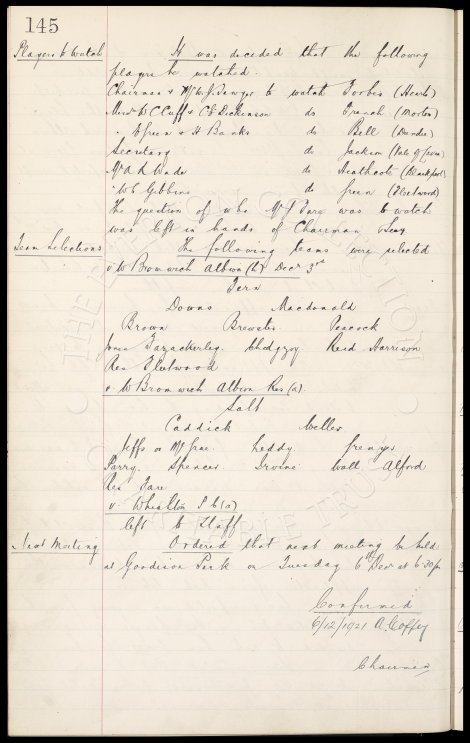 145
Players to Watch It was decided that the following
players be watched.
Chairman & Mr W.J. Sawyer to watch Forbes (Hearts)
Messrs W C Cuff & C S Dickinson do French (Morton)
" E Green & H Banks do Bell (Dundee)
Secretary do Jackson (Vale of Leven)
Mr A R Wade do Heathcote (Blackpool)
" W C Gibbins do Green (Fleetwood)
The question of who Mr J Fare was to watch
was left in hands of Chairman & Secy
Team Selections The following teams were selected
v W Bromwich Albion (h) Decr 3rd
Fern
Downs Macdonald
Brown Brewster Peacock
Jones Fazackerley Chedgzoy Reid Harrison
Res Fleetwood
v W Bromwich Albion Res (a)
Salt
Caddick Weller
Jeffs or McGrae Leddy Grenyer
Parry Spencer Irvine Wall Alford
Res Fare
v Whiston P.C. (a)
left to Staff
Next Meeting Ordered that next meeting be held
at Goodison Park on Tuesday 6th Decr at 6.30 pm
Confirmed
6/12/1921 A. Coffey
Chairman